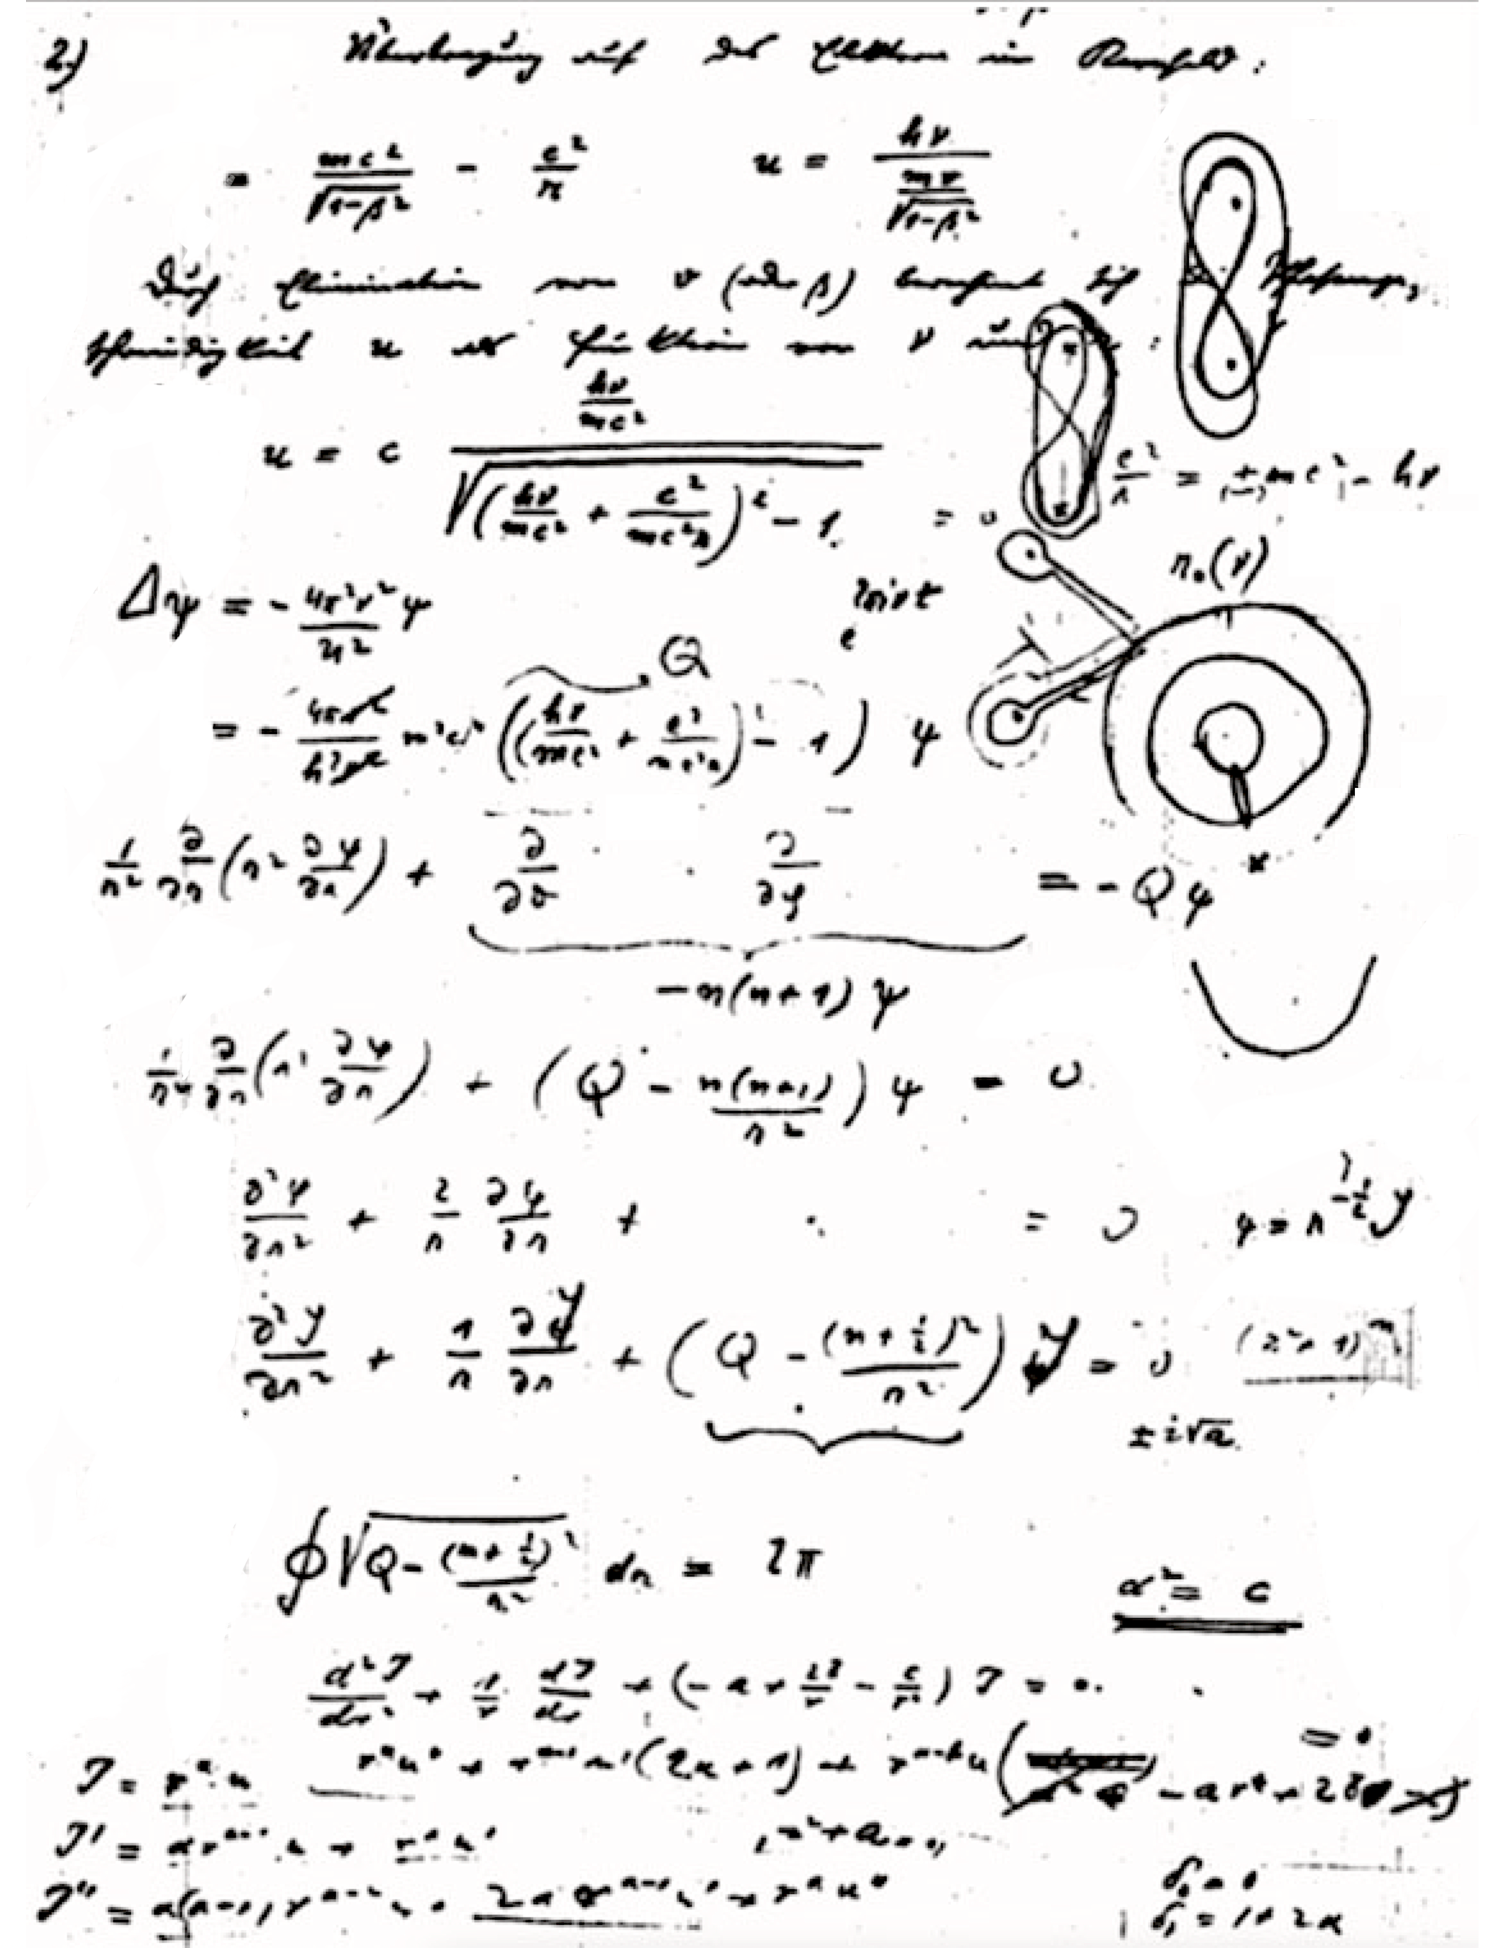 2) Übertragung auf das Elektron im Kernfeld:
= mc²/√(1-β²) - e²/r    u = hν/(mv/√(1-β²))
Durch Elimination von v (oder β) berechnet sich die
u als Funktion von ν und r :
u = c (hν/mc²)/√((hν/mc² + e²/mc²r)² - 1)
= 0    e²/r = ±mc² - hν
r₀(ν)
Δψ = - 4π²ν²/u² ψ    e^(2πiνt)
Q
= - 4π²ν²/h²ν² m²c² ((hν/mc² + e²/mc²r)² - 1) ψ
1/r² ∂/∂r (r² ∂ψ/∂r) + ∂/∂ϑ · ∂/∂φ = - Qψ
-n(n+1) ψ
1/r² ∂/∂r (r² ∂ψ/∂r) + (Q - n(n+1)/r²) ψ = 0
∂²ψ/∂r² + 2/r ∂ψ/∂r + · = 0    ψ = r^(-1/2) y
∂²y/∂r² + 1/r ∂y/∂r + (Q - (n+½)²/r²) y = 0    (z²+1)
± i√a
∮√(Q - (n+½)²/r²) dr = 2π
α² = c
d²J/dr² + 1/r dJ/dr + (-a + 2B/r - c/r²) J = 0.
= 0
J = r^α u    r^α u'' + r^(α-1) u' (2α+1) + r^(α-2) u ( - ar² + 2Br
J' = αr^(α-1) u + r^α u'    z² + a = 0,
δ₀ = 0
J'' = α(α-1) r^(α-2) u + 2α r^(α-1) u' + r^α u''
δ₁ = 1+2α